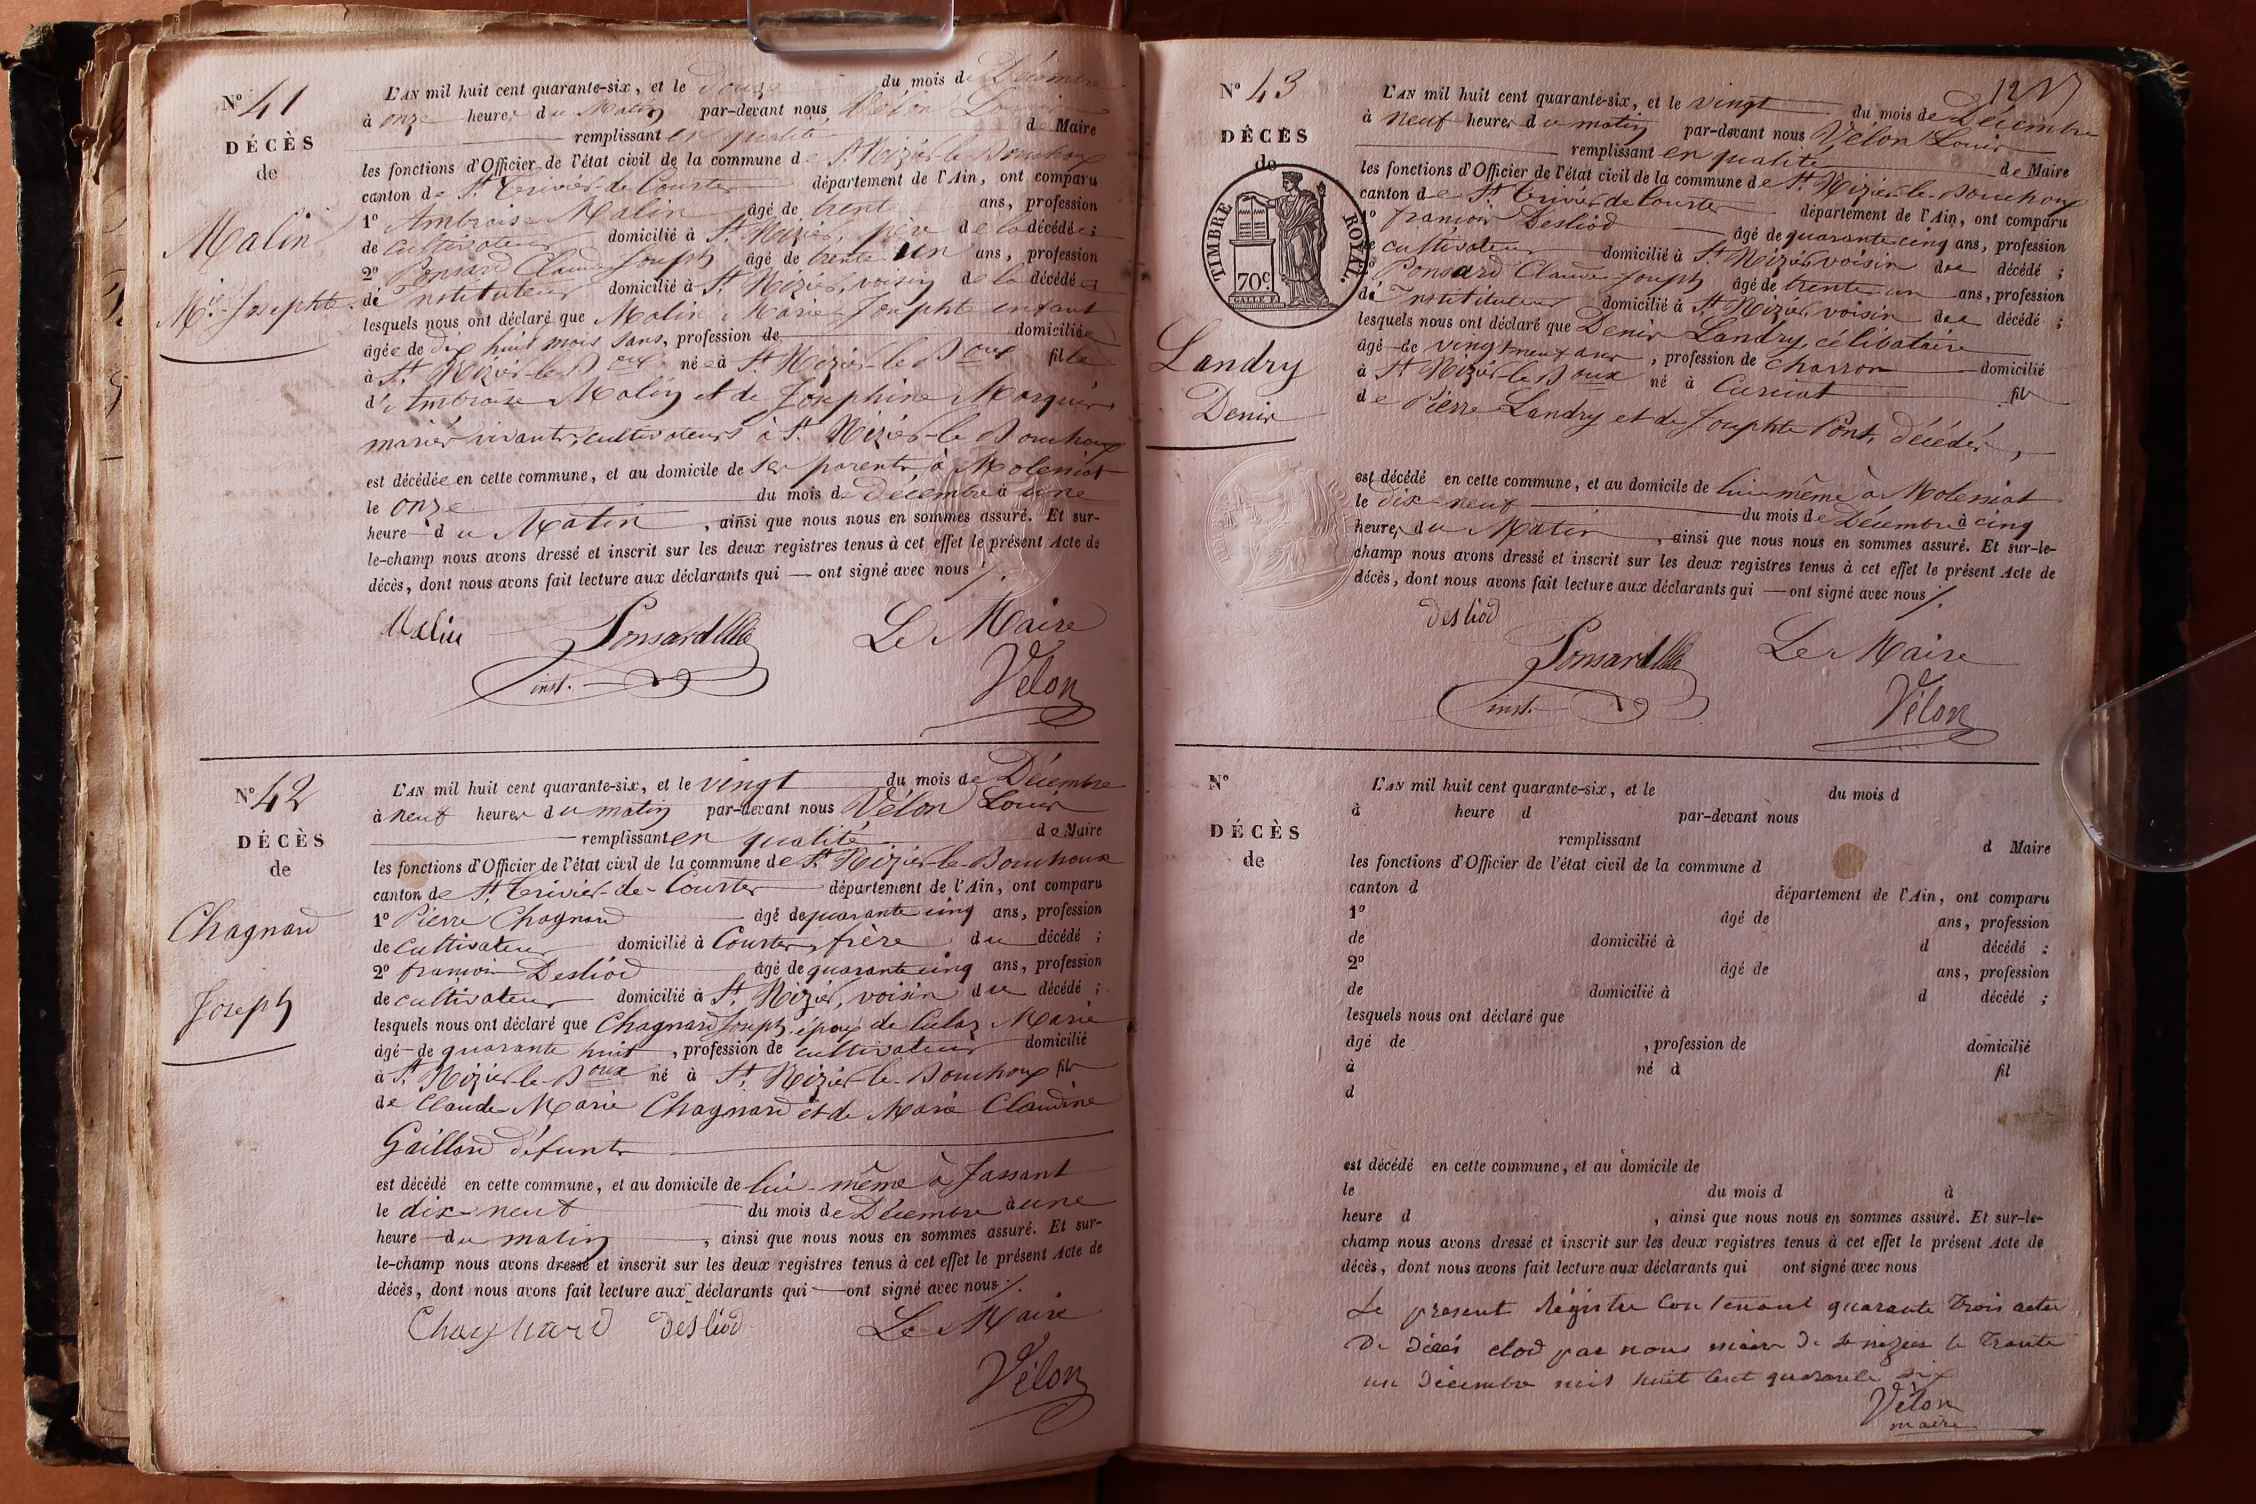 N° 41
DÉCÈS
de
Malin
M.ie Josephte
L'AN mil huit cent quarante-six, et le douze du mois de Décembre
à onze heures du Matin par-devant nous Vélon Louis
remplissant en qualité de Maire
les fonctions d'Officier de l'état civil de la commune de St. Nizier-le-Bouchoux
canton de St. Trivier-de-Courtes département de l'Ain, ont comparu
1° Ambroise Malin âgé de trent ans, profession
de cultivateur domicilié à St. Nizier, père de la décédée;
2° Ponsard Claude Joseph âgé de trente un ans, profession
de Instituteur domicilié à St. Nizier, voisin de la décédée
lesquels nous ont déclaré que Malin Marie Josephte enfant
âgée de dix huit mois sans, profession de domiciliée
à St. Nizier-le-Boux née à St. Nizier-le-Boux fille
d'Ambroise Malin et de Josephine
mariés vivants cultivateurs à St. Nizier-le-Bouchoux
est décédée en cette commune, et au domicile de ses parents, à Moleniat
le onze du mois de Décembre à une
heure du Matin, ainsi que nous nous en sommes assuré. Et sur-
le-champ nous avons dressé et inscrit sur les deux registres tenus à cet effet le présent Acte de
décès, dont nous avons fait lecture aux déclarants qui — ont signé avec nous /.
Malin Ponsard Le Maire
inst. Vélon
N° 42
DÉCÈS
de
Chagnard
Joseph
L'AN mil huit cent quarante-six, et le vingt du mois de Décembre
à neuf heures du matin par-devant nous Vélon Louis
remplissant en qualité de Maire
les fonctions d'Officier de l'état civil de la commune de St. Nizier-le-Bouchoux
canton de St. Trivier-de-Courtes département de l'Ain, ont comparu
1° Pierre Chagnard âgé de quarante cinq ans, profession
de cultivateur domicilié à Courtes, frère du décédé;
2° françois Desliod âgé de quarante cinq ans, profession
de cultivateur domicilié à St. Nizier, voisin du décédé;
lesquels nous ont déclaré que Chagnard Joseph, époux de Marie
âgé de quarante huit, profession de cultivateur domicilié
à St. Nizier-le-Boux né à St. Nizier-le-Bouchoux fils
de Claude-Marie Chagnard et de Marie Claudine
Gaillard défunts
est décédé en cette commune, et au domicile de lui-même à Jassant
le dix-neuf du mois de Décembre à une
heure du matin, ainsi que nous nous en sommes assuré. Et sur-
le-champ nous avons dressé et inscrit sur les deux registres tenus à cet effet le présent Acte de
décès, dont nous avons fait lecture aux déclarants qui — ont signé avec nous /.
Chagnard desliod Le Maire
Vélon
N° 43
DÉCÈS
de
TIMBRE ROYAL.
70c
Landry
Denis
L'AN mil huit cent quarante-six, et le vingt du mois de Décembre
à neuf heures du matin par-devant nous Vélon Louis
remplissant en qualité de Maire
les fonctions d'Officier de l'état civil de la commune de St. Nizier-le-Bouchoux
canton de St. Trivier de Courtes département de l'Ain, ont comparu
1° françois Desliod âgé de quarante cinq ans, profession
de cultivateur domicilié à St. Nizier voisin du décédé;
2° Ponsard Claude-Joseph âgé de trente un ans, profession
de Instituteur domicilié à St. Nizier, voisin du décédé;
lesquels nous ont déclaré que Denis Landry, célibataire
âgé de vingt neuf ans, profession de charron domicilié
à St. Nizier-le-Boux né à Curciat fils
de Pierre Landry et de Josephte Pont, décédés,
est décédé en cette commune, et au domicile de lui-même à Moleniat
le dix-neuf du mois de Décembre à cinq
heures du Matin, ainsi que nous nous en sommes assuré. Et sur-le-
champ nous avons dressé et inscrit sur les deux registres tenus à cet effet le présent Acte de
décès, dont nous avons fait lecture aux déclarants qui — ont signé avec nous /.
desliod
Ponsard Le Maire
inst. Vélon
N°
DÉCÈS
de
L'AN mil huit cent quarante-six, et le du mois d
à heure d par-devant nous
remplissant d Maire
les fonctions d'Officier de l'état civil de la commune d
canton d département de l'Ain, ont comparu
1° âgé de ans, profession
de domicilié à d décédé;
2° âgé de ans, profession
de domicilié à d décédé;
lesquels nous ont déclaré que
âgé de , profession de domicilié
à né à fil
d
est décédé en cette commune, et au domicile de
le du mois d à
heure d , ainsi que nous nous en sommes assuré. Et sur-le-
champ nous avons dressé et inscrit sur les deux registres tenus à cet effet le présent Acte de
décès, dont nous avons fait lecture aux déclarants qui ont signé avec nous
Le présent Régistre Contenant quarante trois actes
De décès clod par nous maire de St nizier le trante
un décembre mil huit cent quarante six
Vélon
maire